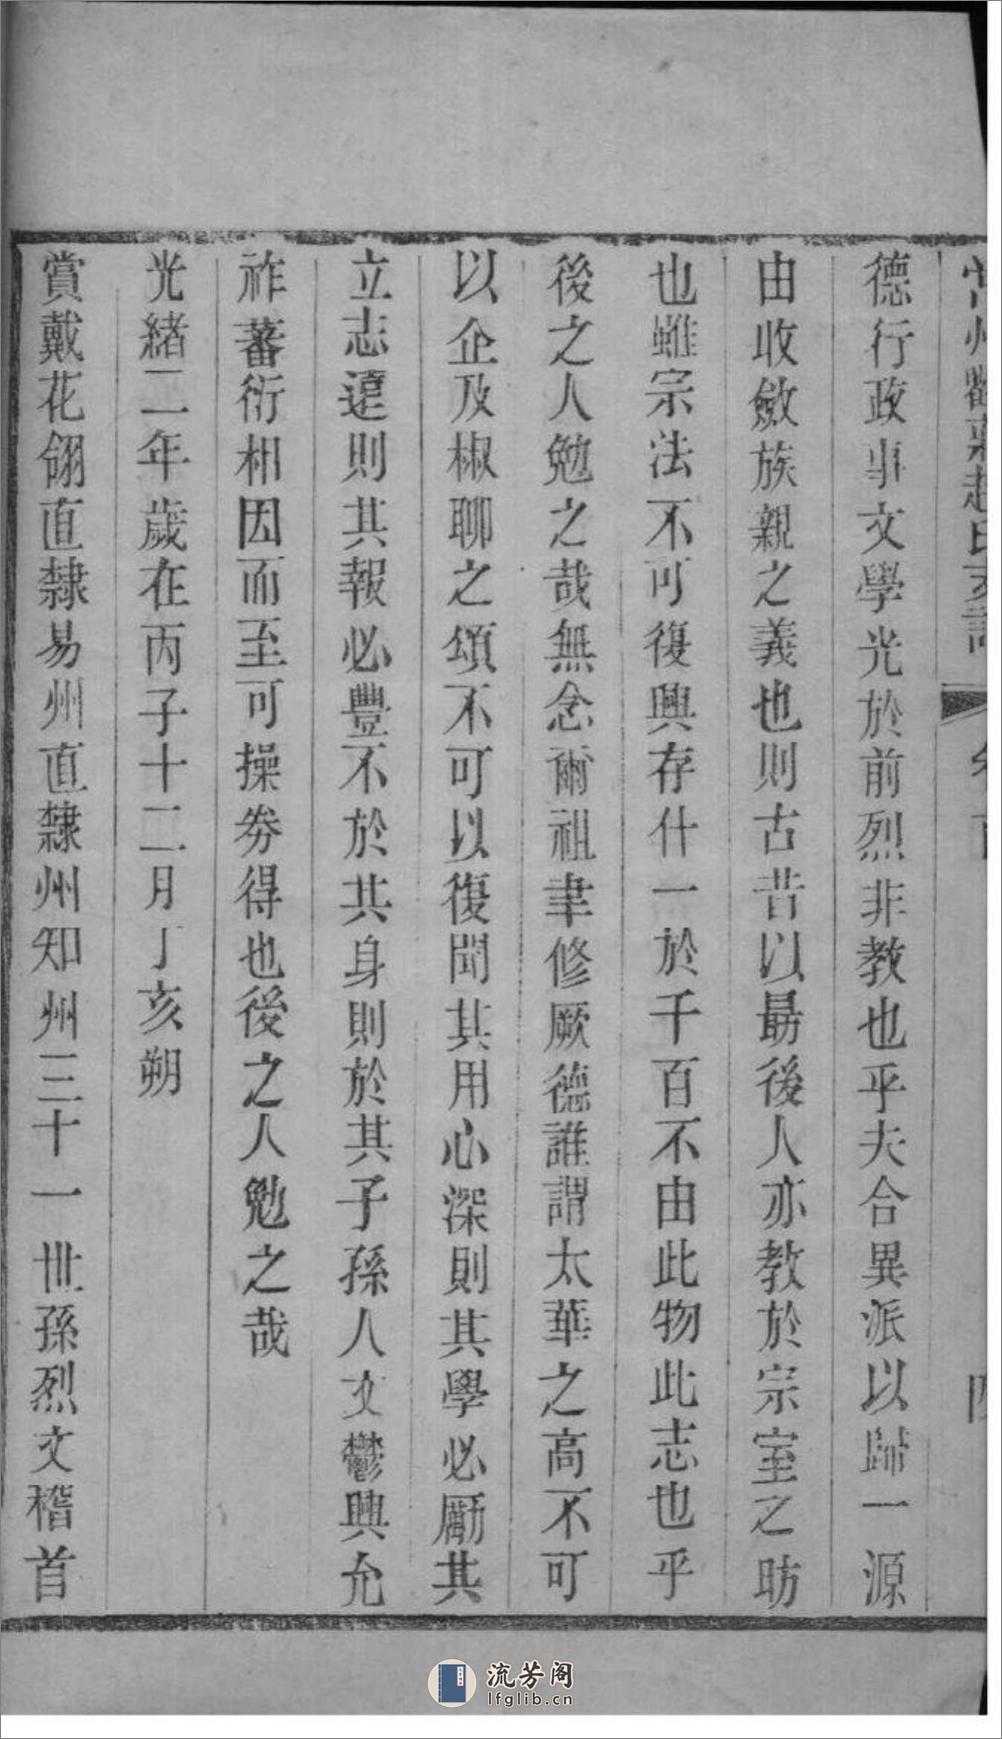 德行政事文學光於前烈非教也乎夫合異派以歸一源
由收斂族親之義也則古昔以最後人亦教於宗室之昉
也雖宗法不可復興存什一於千百不由此物此志也乎
後之人勉之哉無念爾祖聿修厥德誰謂太華之高不可
以企及椒聊之頌不可以復聞其用心深則其學必勵其
立志遠則其報必豐不於其身則於其子孫人文鬱興允
祚蕃衍相因而至可操券得也後之人勉之哉
光緒二年歲在丙子十二月丁亥朔
賞戴花翎直隸易州直隸州知州三十一世孫烈文稽首
流芳阁
lfglib.cn